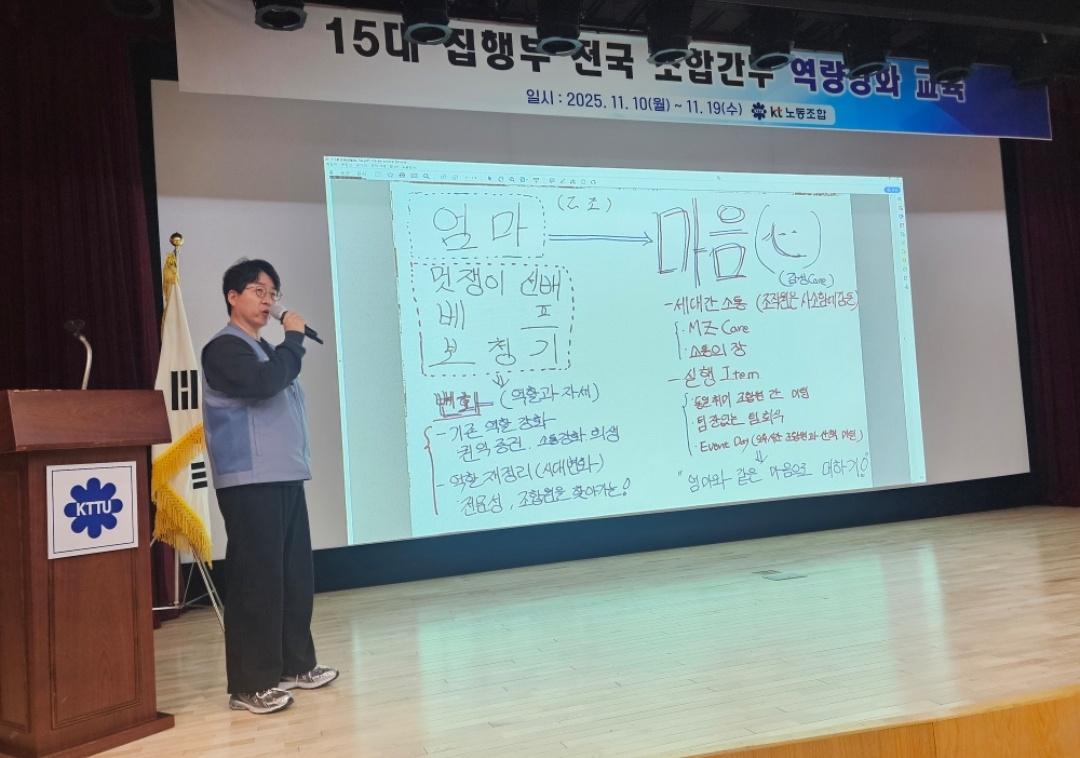 15대 집행부 전국 조합간부 역량강화 교육
일시 : 2025. 11. 10(월) ~ 11. 19(수) kt 노동조합
엄마
(2조)
마음
(감성Care)
멋쟁이 선배
베 프
보 청 기
변화 (역할과 자세)
- 기존 역할 강화
권익 증진. 소통강화 희생
- 역할 재정리 (시대변화)
· 전문성, 조합원을 찾아가는!
- 세대간 소통 (조직원은 사소함에 감동)
· MZ Care
· 소통의 장
- 실행 Item
· 동일취미 조합원 간 미팅
· 팀장없는 팀회식
· Event Day
"엄마와 같은 마음으로 대하기!"
KTTU